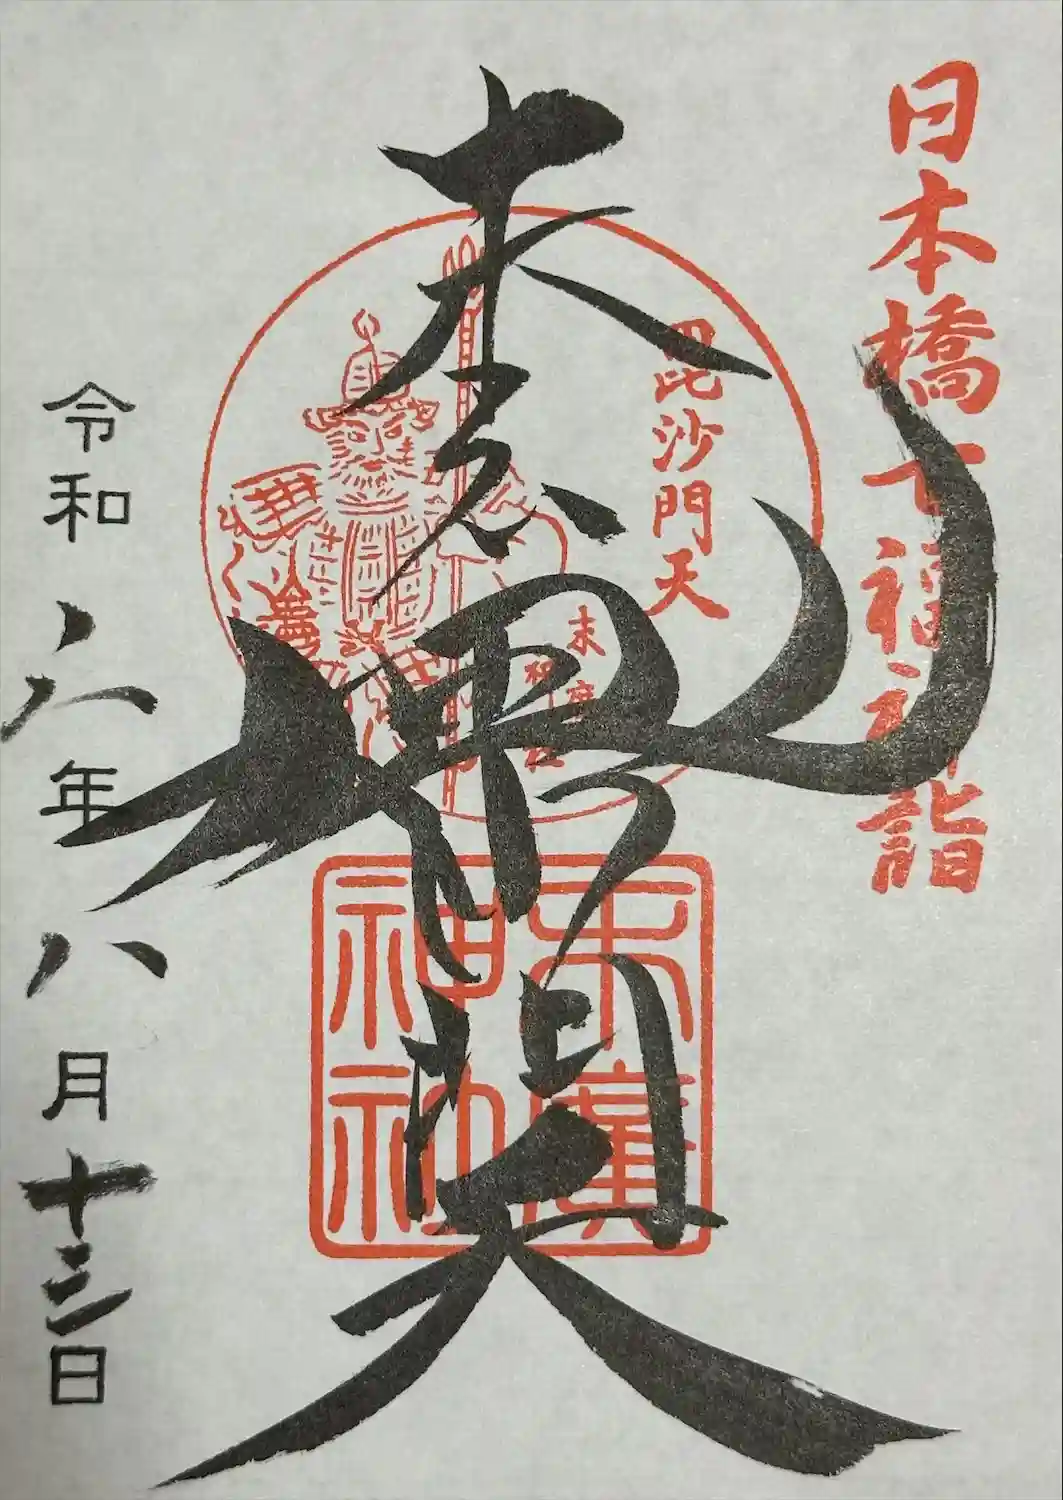 日本橋七福神詣
毘沙門天
末廣
神社
末廣
神社
毘沙門天
令和六年八月十三日